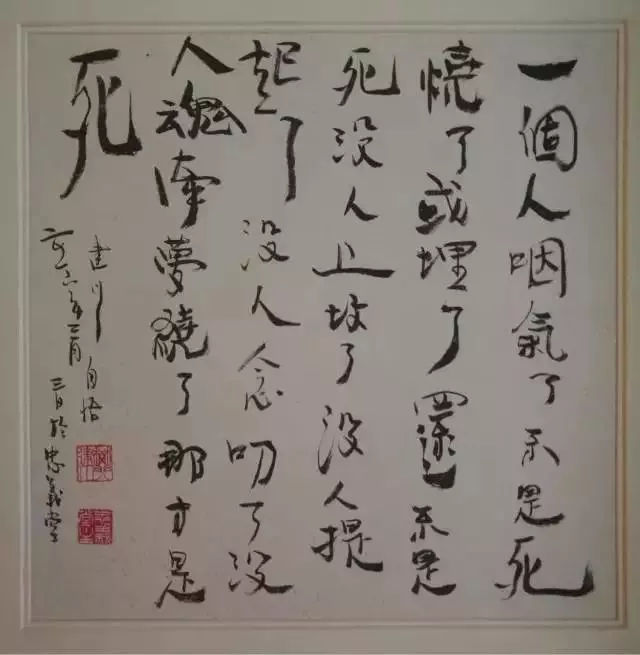 一個人咽氣了不是死
燒了或埋了還不是
死没人上坟了没人提
起了没人念叨了没
人魂牽夢繞了那才是
死
建川自悟
六年二月三日於忠義堂